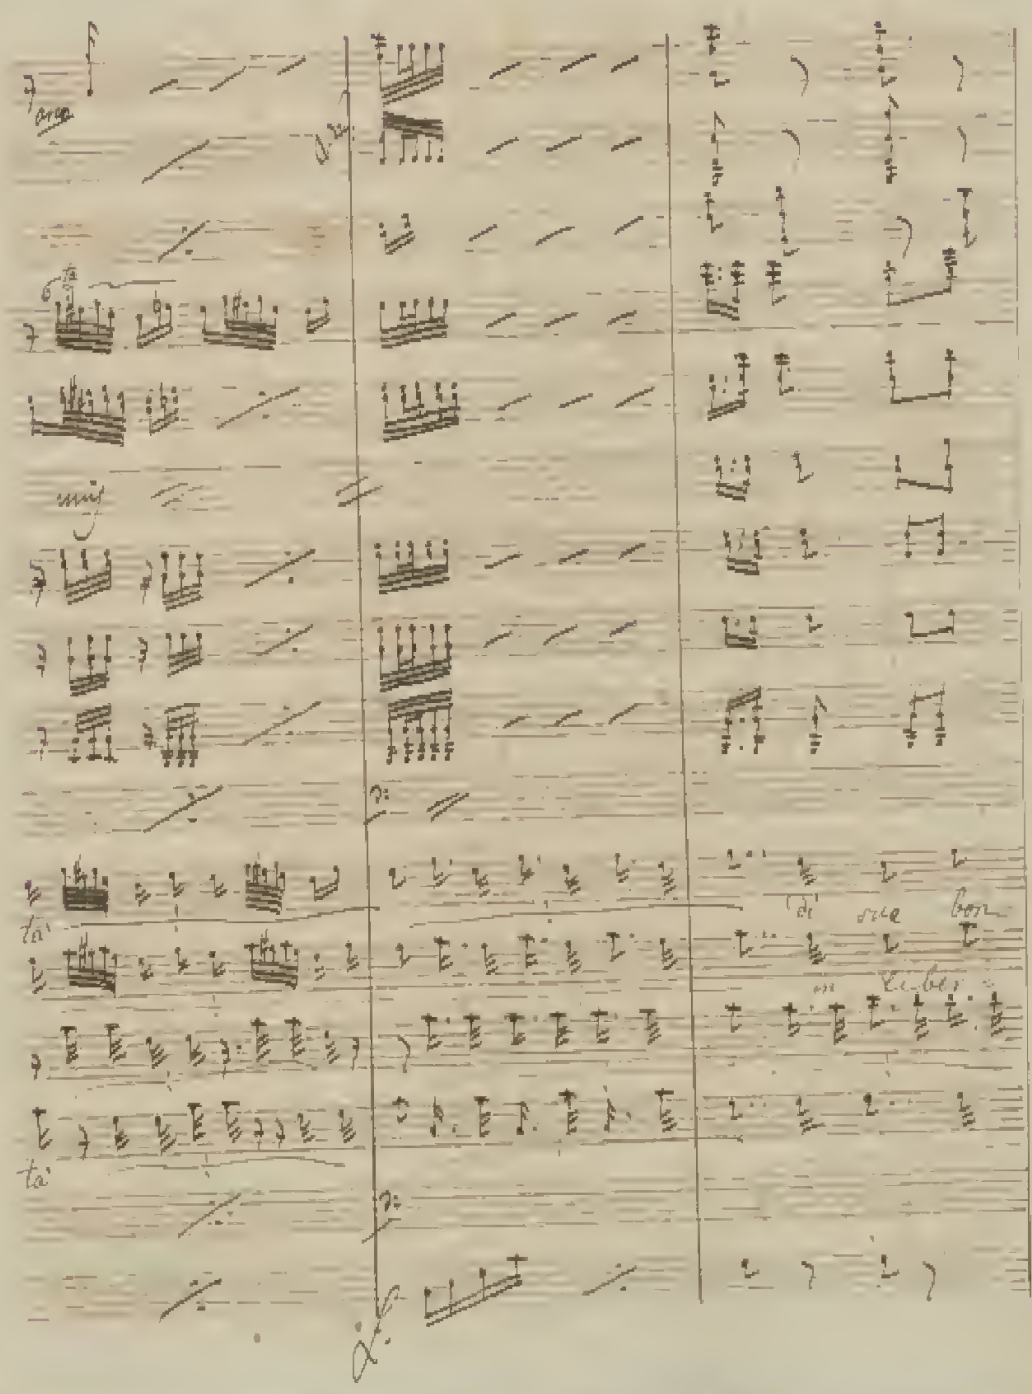 arco
unis
tà
di sua bon
in liber
tà